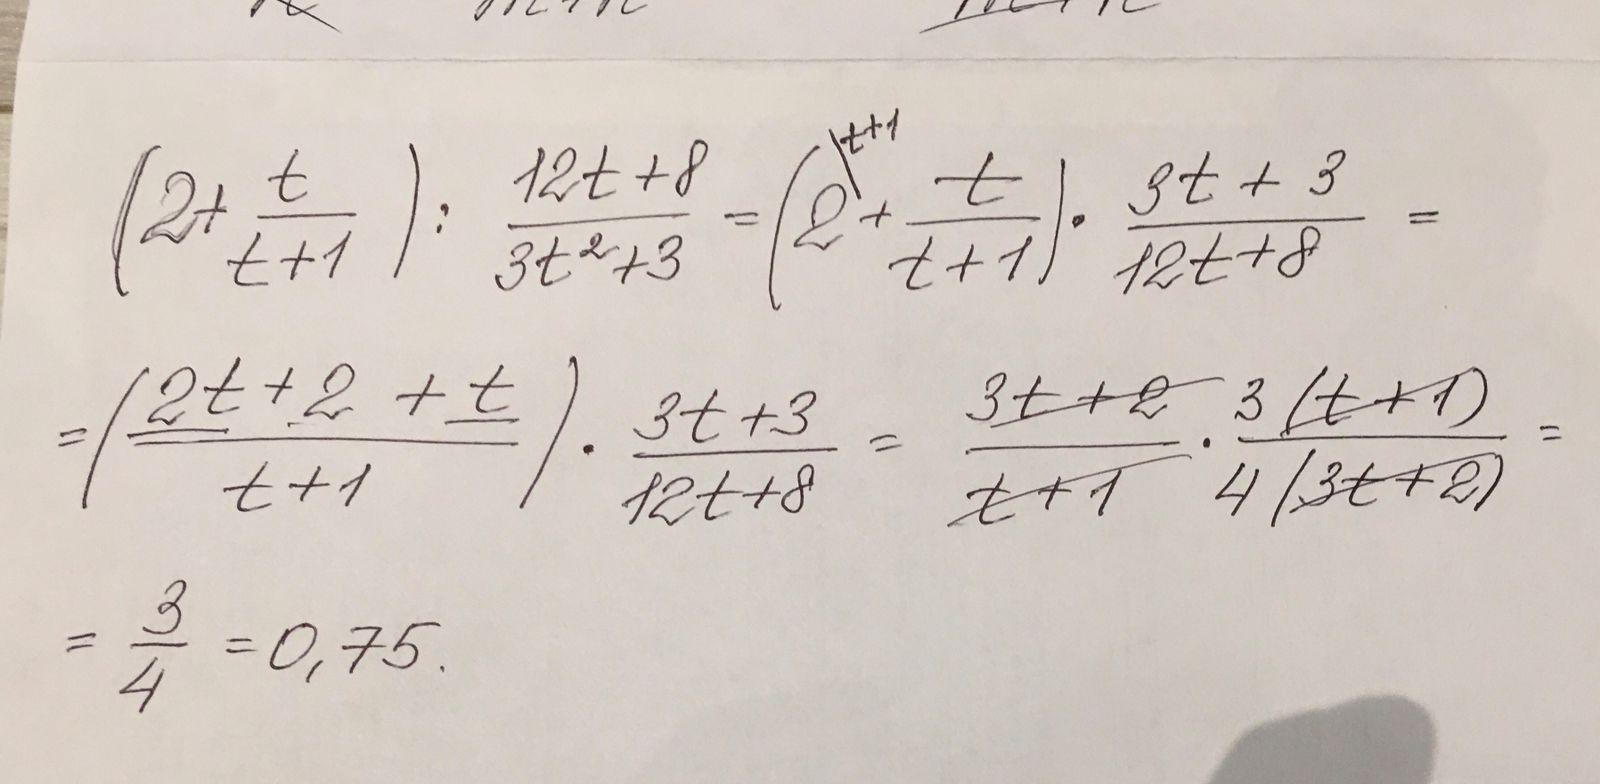 (2 + t/(t+1)) : (12t+8)/(3t²+3) = (2\t+1 + t/(t+1)) · (3t+3)/(12t+8) =
= ((2t+2+t)/(t+1)) · (3t+3)/(12t+8) = (3t+2)/(t+1) · 3(t+1)/4(3t+2) =
= 3/4 = 0,75.